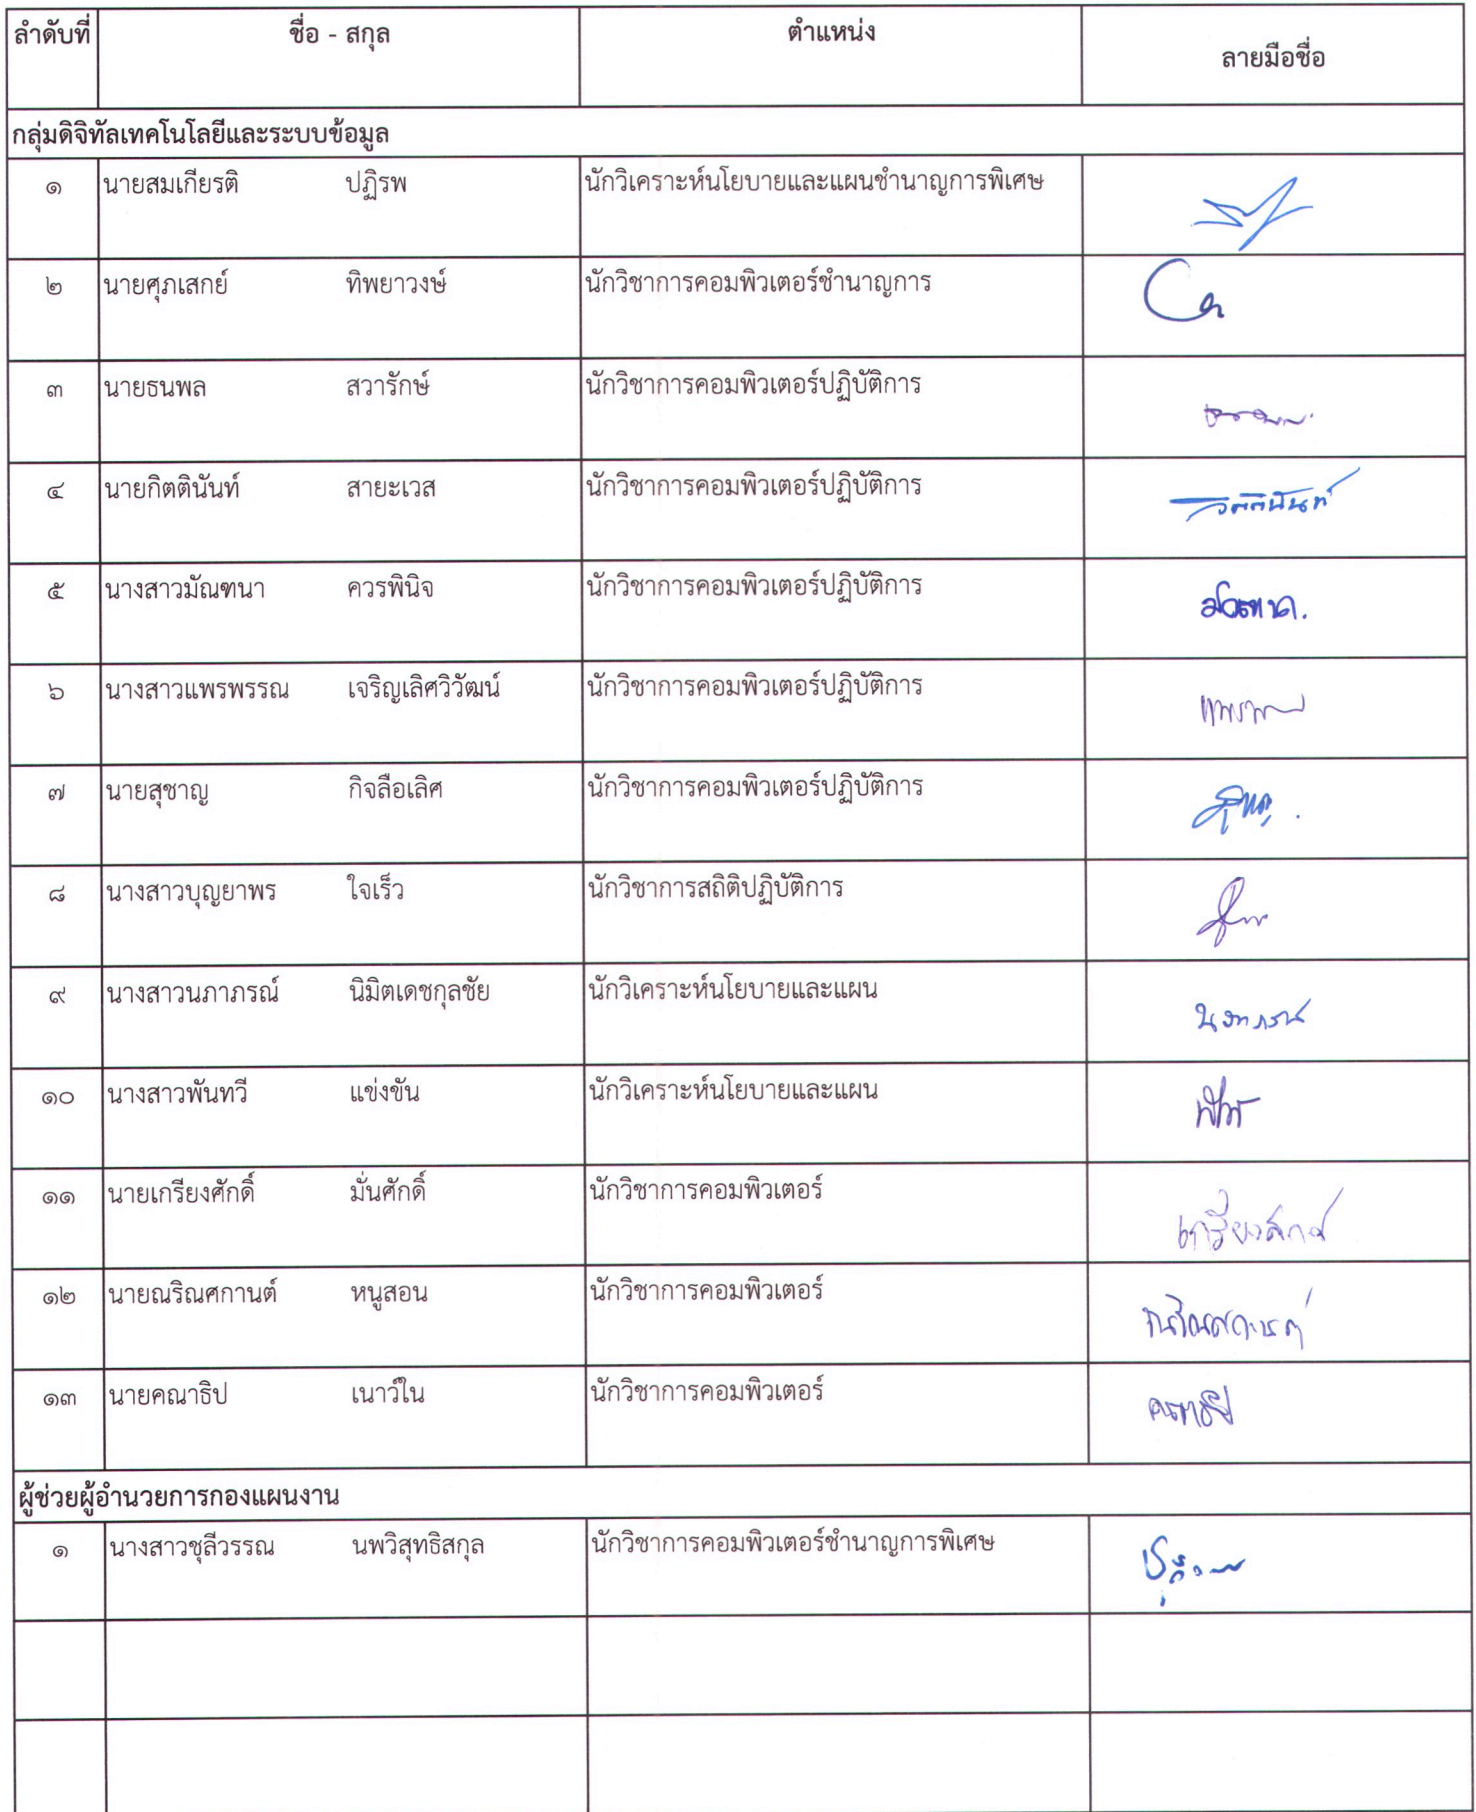 ลำดับที่ ชื่อ - สกุล ตำแหน่ง ลายมือชื่อ
กลุ่มดิจิทัลเทคโนโลยีและระบบข้อมูล
๑ นายสมเกียรติ ปฏิรพ นักวิเคราะห์นโยบายและแผนชำนาญการพิเศษ
๒ นายศุภเสกย์ ทิพยาวงษ์ นักวิชาการคอมพิวเตอร์ชำนาญการ
๓ นายธนพล สวารักษ์ นักวิชาการคอมพิวเตอร์ปฏิบัติการ
๔ นายกิตตินันท์ สายะเวส นักวิชาการคอมพิวเตอร์ปฏิบัติการ
๕ นางสาวมัณฑนา ควรพินิจ นักวิชาการคอมพิวเตอร์ปฏิบัติการ
๖ นางสาวแพรพรรณ เจริญเลิศวิวัฒน์ นักวิชาการคอมพิวเตอร์ปฏิบัติการ
๗ นายสุชาญ กิจลือเลิศ นักวิชาการคอมพิวเตอร์ปฏิบัติการ
๘ นางสาวบุญยาพร ใจเร็ว นักวิชาการสถิติปฏิบัติการ
๙ นางสาวนภาภรณ์ นิมิตเดชกุลชัย นักวิเคราะห์นโยบายและแผน นภาภรณ์
๑๐ นางสาวพันทวี แข่งขัน นักวิเคราะห์นโยบายและแผน
๑๑ นายเกรียงศักดิ์ มั่นศักดิ์ นักวิชาการคอมพิวเตอร์ เกรียงศักดิ์
๑๒ นายณริณศกานต์ หนูสอน นักวิชาการคอมพิวเตอร์ ณริณศกานต์
๑๓ นายคณาธิป เนาว์ใน นักวิชาการคอมพิวเตอร์ คณาธิป
ผู้ช่วยผู้อำนวยการกองแผนงาน
๑ นางสาวชุลีวรรณ นพวิสุทธิสกุล นักวิชาการคอมพิวเตอร์ชำนาญการพิเศษ